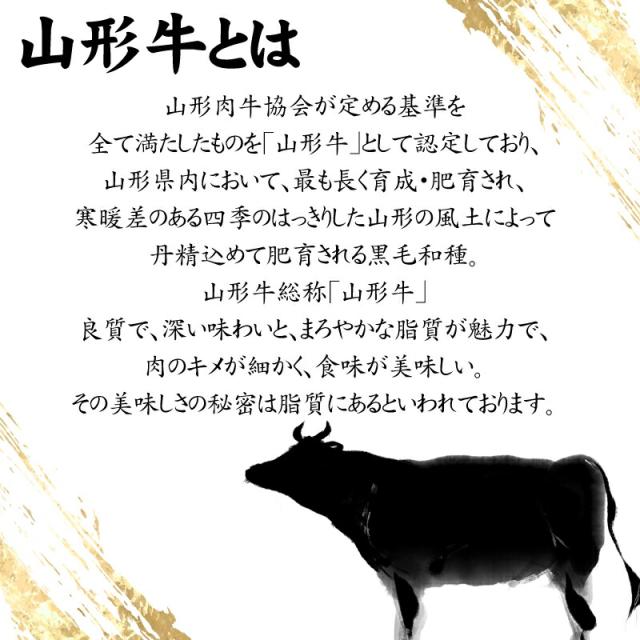 山形牛とは
山形肉牛協会が定める基準を
全て満たしたものを「山形牛」として認定しており、
山形県内において、最も長く育成・肥育され、
寒暖差のある四季のはっきりした山形の風土によって
丹精込めて肥育される黒毛和種。
山形牛総称「山形牛」
良質で、深い味わいと、まろやかな脂質が魅力で、
肉のキメが細かく、食味が美味しい。
その美味しさの秘密は脂質にあるといわれております。